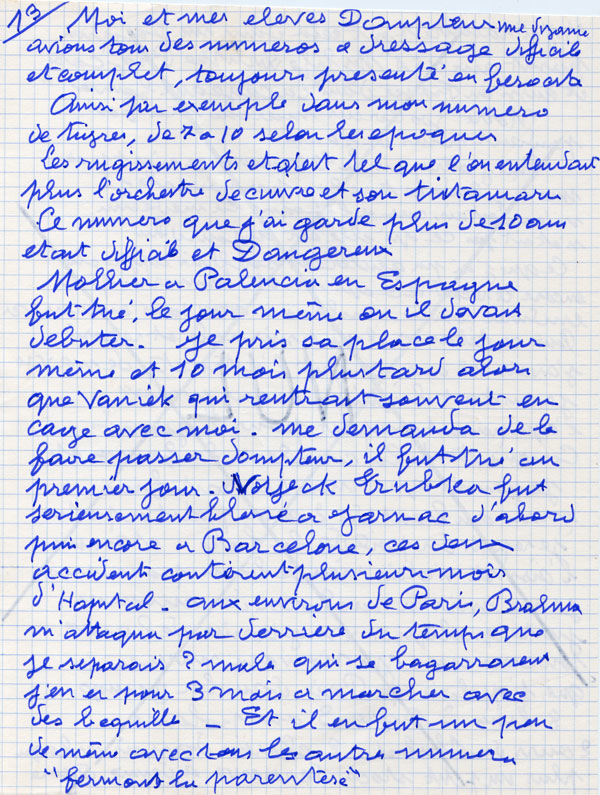 13 Moi et mes eleves Dompteurs me disome
avions tous des numeros de dressage difficile
et complet, toujours presenté en feroce
Ainsi par exemple dans mon numero
de tigres, de 7 a 10 selon les epoques
Les rugissements etaient tel que l'on entendait
plus l'orchestre de cuivre et son tintamarre
Ce numero que j'ai garde plus de 10 ans
etait difficile et Dangereux
Mollier a Palencia en Espagne
fut tué, le jour même ou il devait
debuter. Je pris sa place le jour
même et 10 mois plus tard alors
que Vaniek qui rentrait souvent en
cage avec moi. me demanda de le
faire passer dompteur, il fut tué au
premier jour. Wojeck Trubka fut
serieusement blessé a Jarnac d'abord
puis encore a Barcelone, ces deux
accidents conterent plusieurs mois
d'Hopital. aux environs de Paris, Brahma
m'attaqua par derriere du temps que
je separais 2 males qui se bagarraient
j'en er pour 3 mois a marcher avec
des bequilles _ Et il en fut un peu
de même avec tous les autres numero
"fermons la parentese"